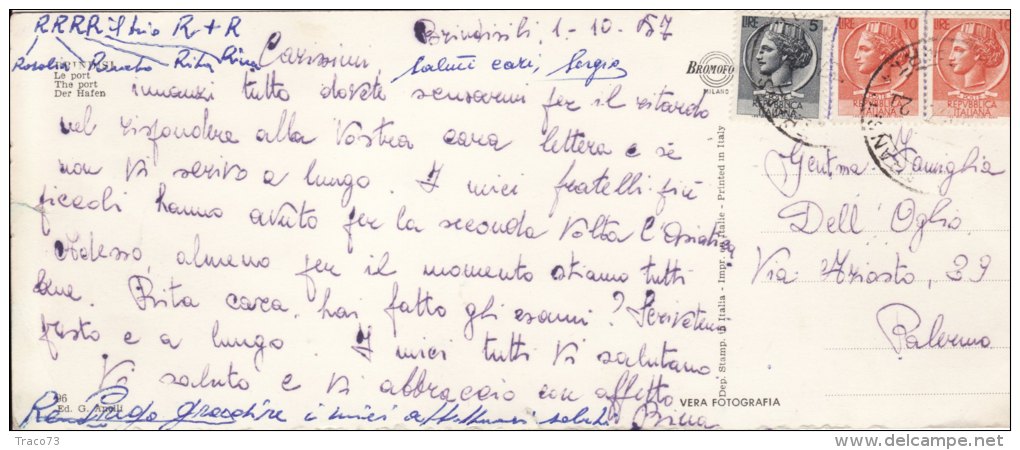 RRRR il trio R + R
Brindisi li, 1-10-57
Rosolia Renato Rita Rina
Carissimi, Saluti cari, Sergio
BRINDISI
Le port
The port
Der Hafen
innanzi tutto dovete scusarmi per il ritardo
nel rispondere alla Vostra cara lettera e se
non Vi scrivo a lungo. I miei fratelli più
piccoli hanno avuto per la seconda volta l'Asiatica
Adesso, almeno per il momento stiamo tutti
bene. Rita cara, hai fatto gli esami? Scrivetemi
presto e a lungo. I miei tutti Vi salutano
Vi saluto e Vi abbraccio con affetto
Bina
Prego gradire i miei affettuosi saluti
96
Ed. G. Anelli
BROMOFO
MILANO
Dep. Stamp. in Italia - Impr. en Italie - Printed in Italy
VERA FOTOGRAFIA
LIRE 5
REPVBBLICA
ITALIANA
LIRE 10
REPVBBLICA
ITALIANA
LIRE 10
REPVBBLICA
ITALIANA
Gent.ma Famiglia
Dell'Oglio
Via Ariosto, 39
Palermo
Traco73
delcampe.net